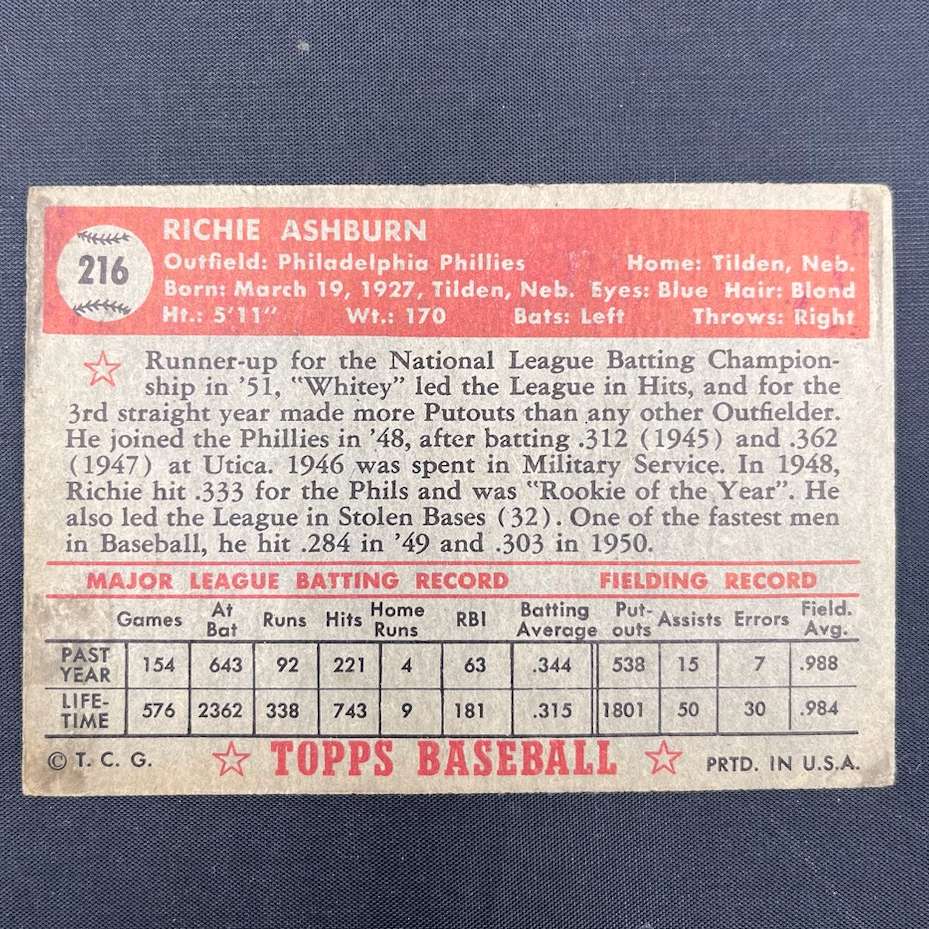 216
RICHIE ASHBURN
Outfield: Philadelphia Phillies Home: Tilden, Neb.
Born: March 19, 1927, Tilden, Neb. Eyes: Blue Hair: Blond
Ht.: 5'11" Wt.: 170 Bats: Left Throws: Right
Runner-up for the National League Batting Champion-
ship in '51, "Whitey" led the League in Hits, and for the
3rd straight year made more Putouts than any other Outfielder.
He joined the Phillies in '48, after batting .312 (1945) and .362
(1947) at Utica. 1946 was spent in Military Service. In 1948,
Richie hit .333 for the Phils and was "Rookie of the Year". He
also led the League in Stolen Bases (32). One of the fastest men
in Baseball, he hit .284 in '49 and .303 in 1950.
MAJOR LEAGUE BATTING RECORD FIELDING RECORD
Games At Bat Runs Hits Home Runs RBI Batting Average Put-outs Assists Errors Field. Avg.
PAST YEAR 154 643 92 221 4 63 .344 538 15 7 .988
LIFE-TIME 576 2362 338 743 9 181 .315 1801 50 30 .984
© T. C. G. TOPPS BASEBALL PRTD. IN U.S.A.